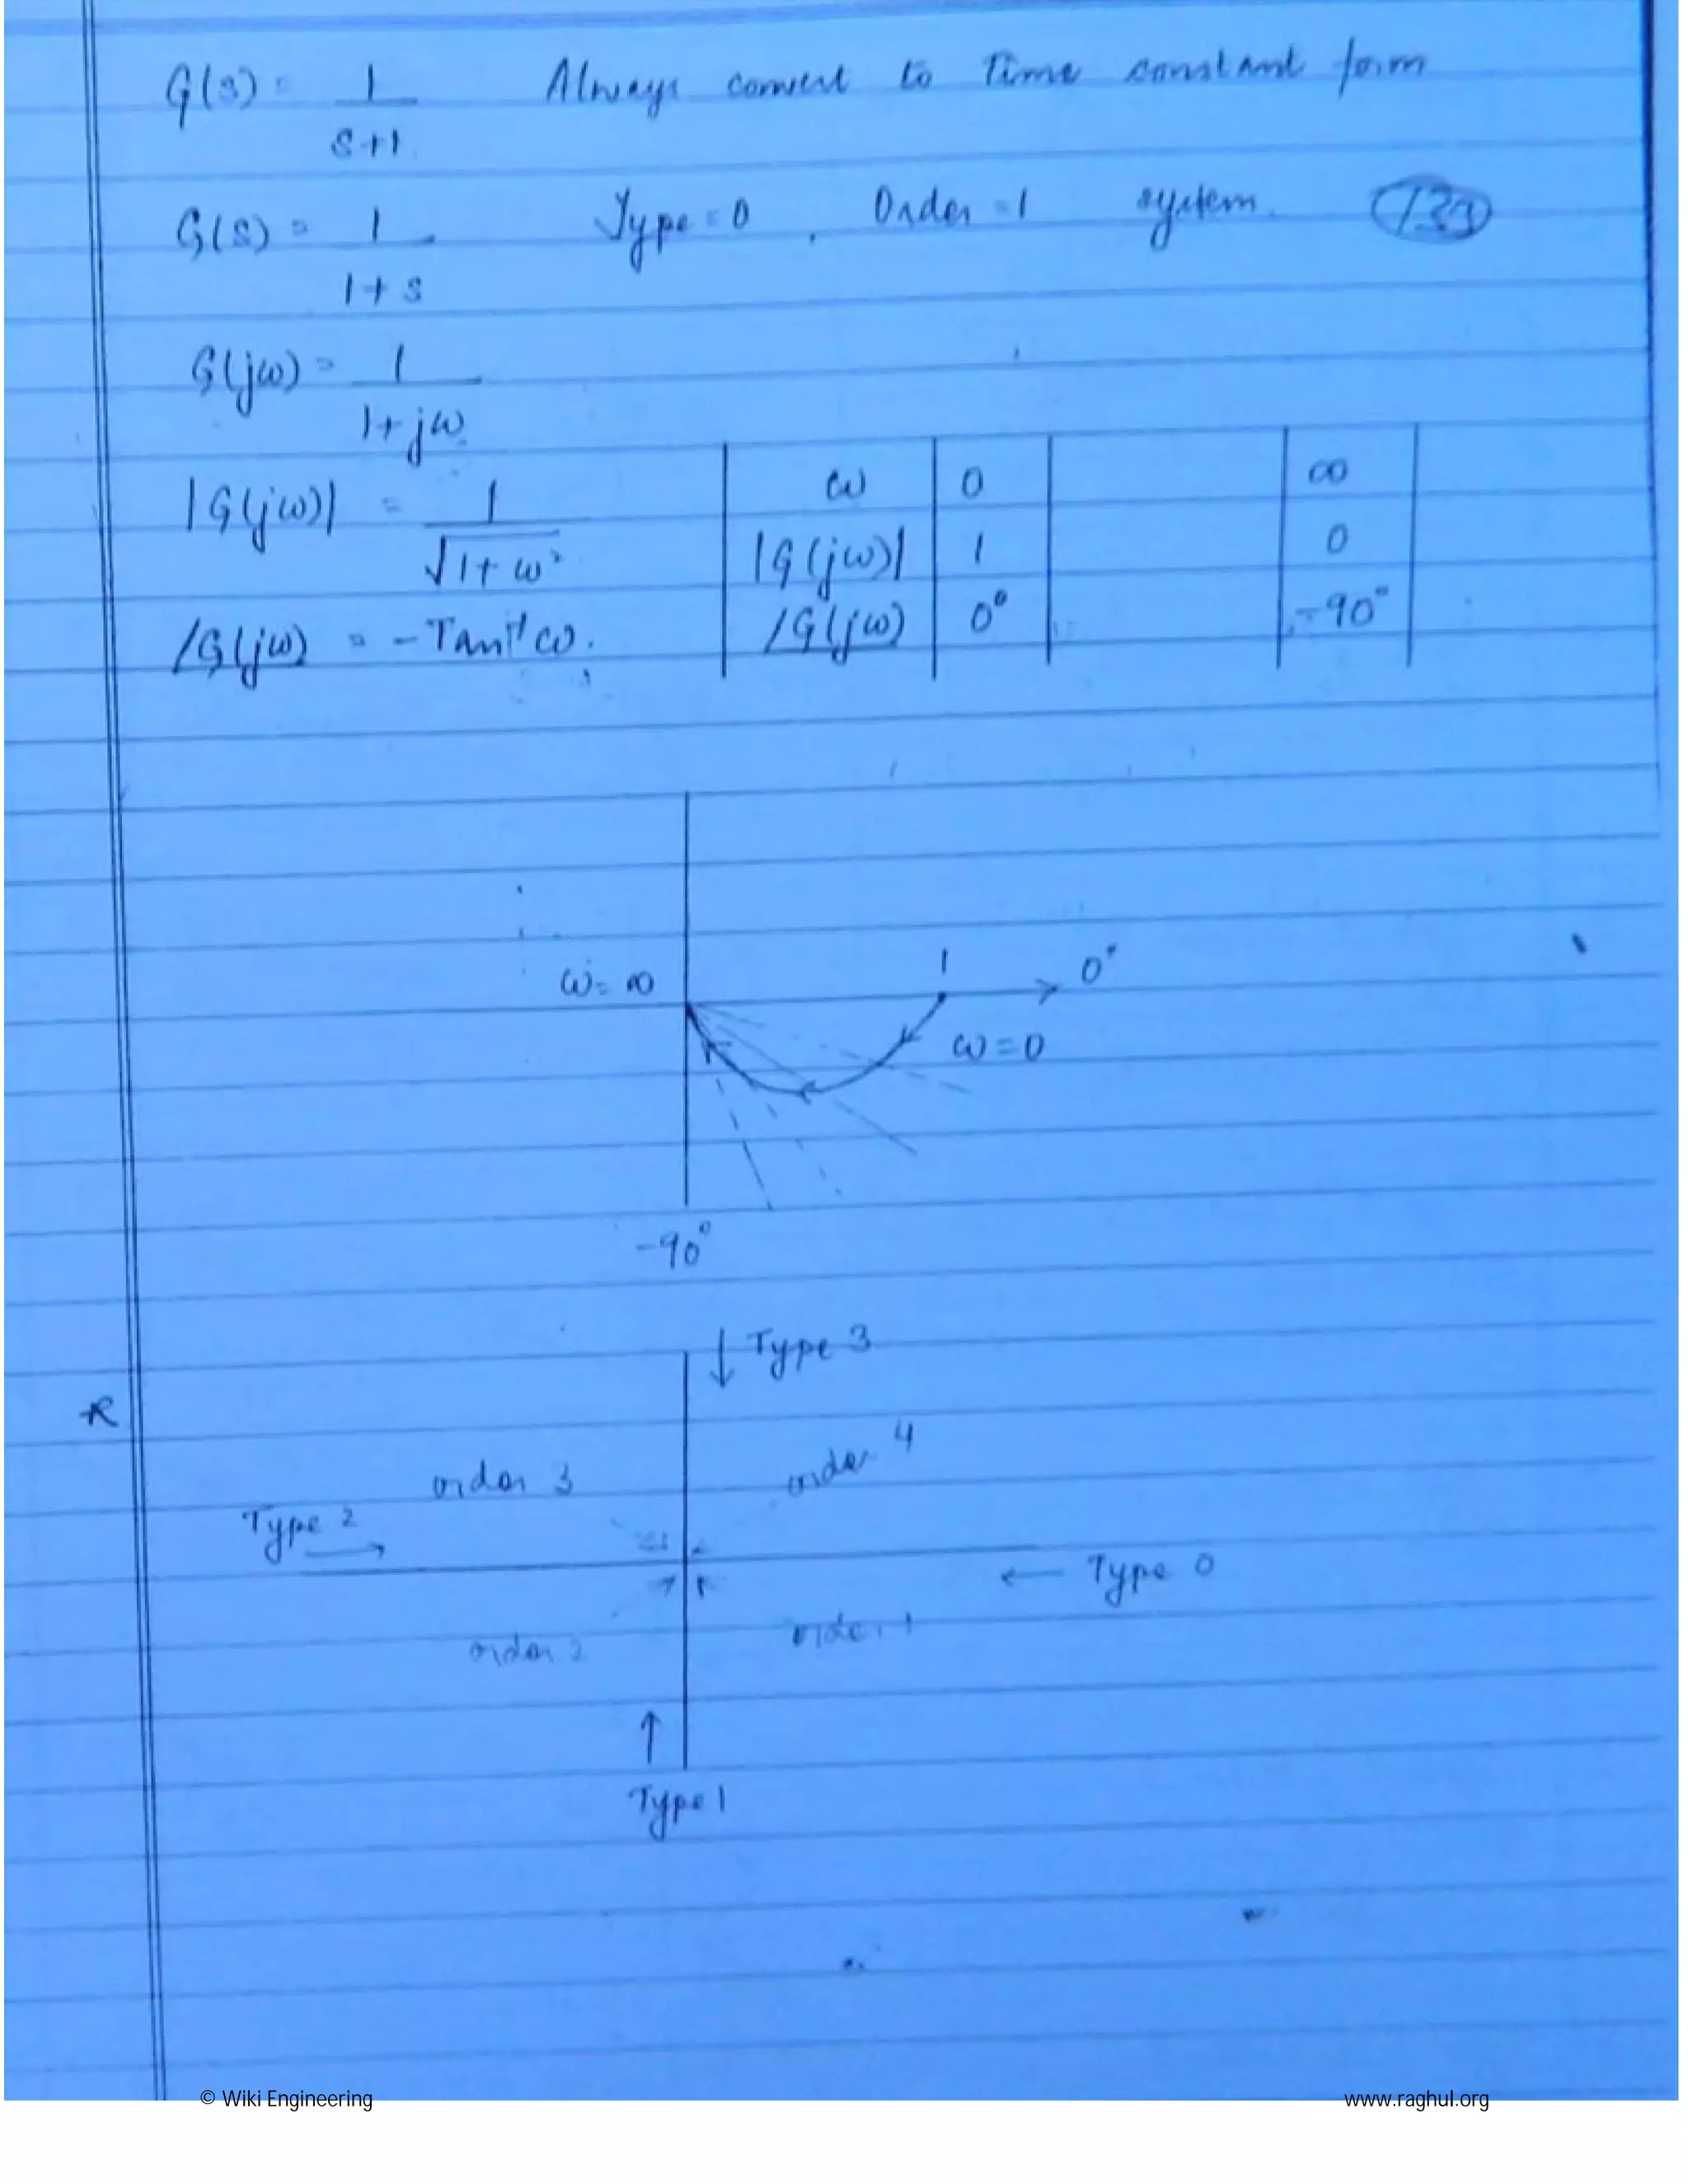 G(s) = 1/(s+1) Always convert to Time constant form
G(s) = 1/(1+s) Type = 0, Order = 1 system.
G(jω) = 1/(1+jω)
|G(jω)| = 1/√(1+ω²)
∠G(jω) = -Tan⁻¹ω.
ω 0 ∞
|G(jω)| 1 0
∠G(jω) 0° -90°
ω=∞ 1 0°
ω=0
-90°
Type 3
order 3 order 4
Type 2
Type 0
order 2 order 1
Type 1
© Wiki Engineering www.raghul.org